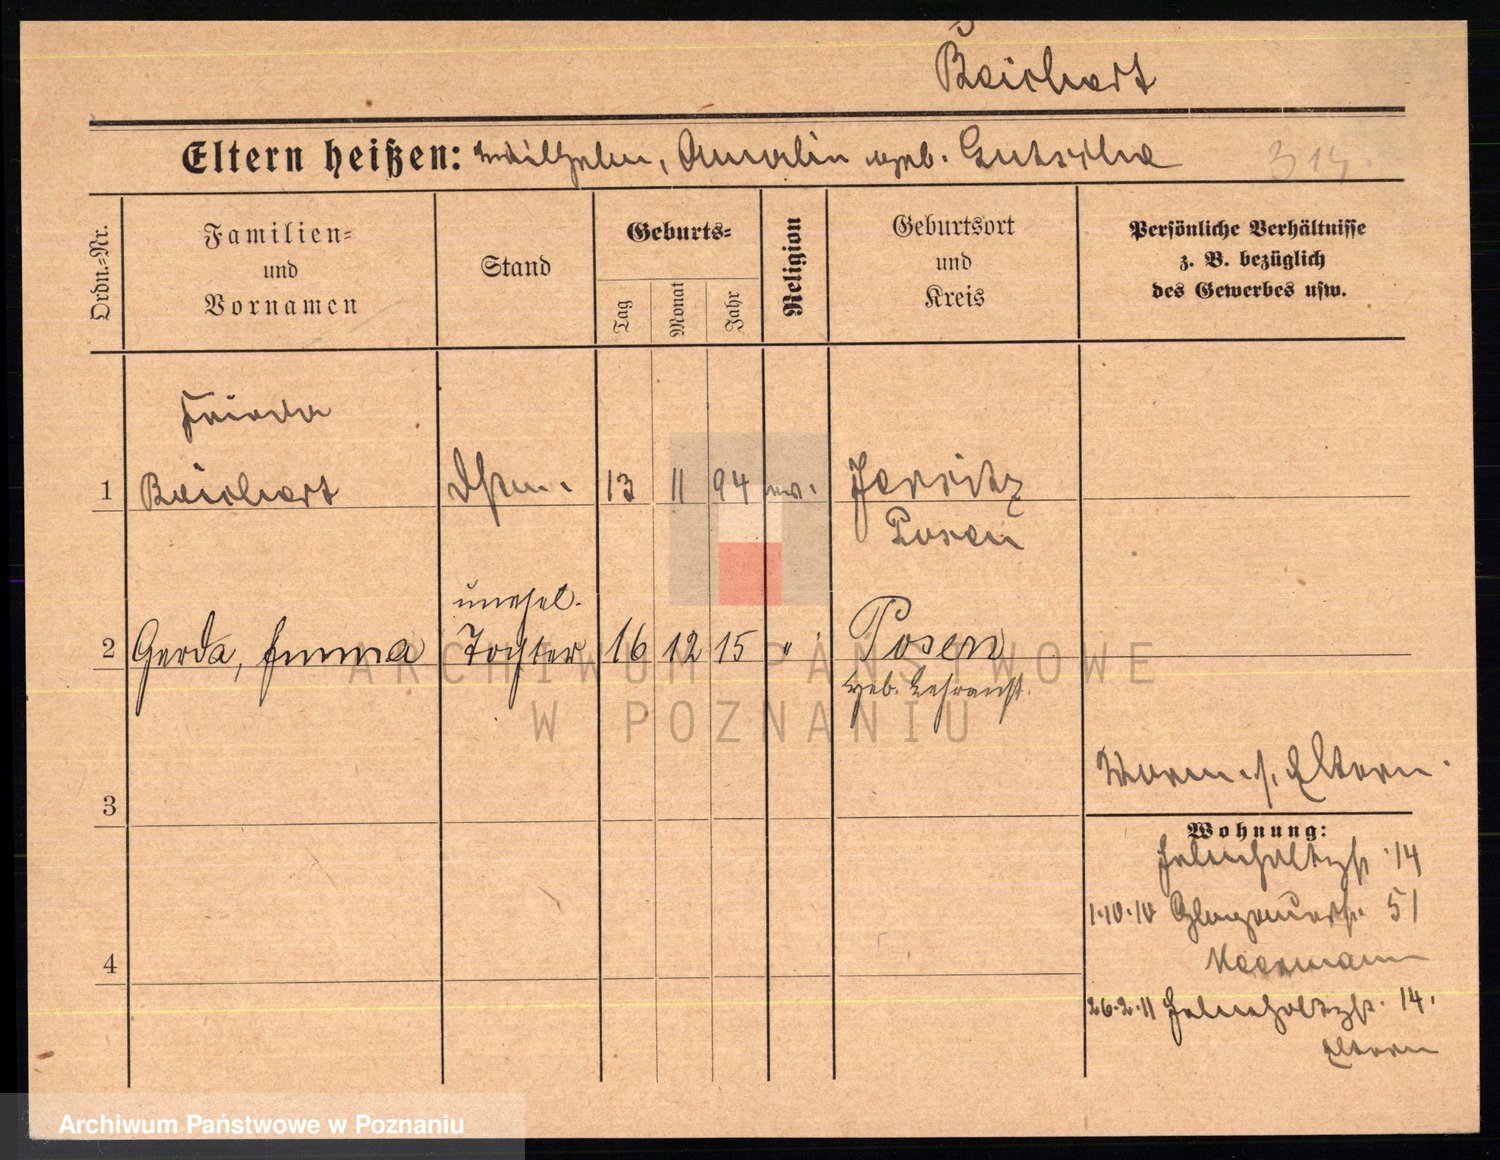 Reichert
Eltern heißen: Wilhelm, Amalie geb. Gutsche
314.
Ordn.-Nr.
Familien-
und
Vornamen
Stand
Geburts-
Tag
Monat
Jahr
Religion
Geburtsort
und
Kreis
Persönliche Verhältnisse
z. B. bezüglich
des Gewerbes usw.
Frieda
1 Reichert 13 11 94 ev. Jersitz
Posen
unehel.
2 Gerda, Emma Tochter 16 12 15 " Posen
geb. Lehranst.
3
Eltern.
Wohnung:
14
1.10.10 Glogauerstr. 51
26.2.11 14.
Eltern
4
ARCHIWUM PAŃSTWOWE
W POZNANIU
Archiwum Państwowe w Poznaniu